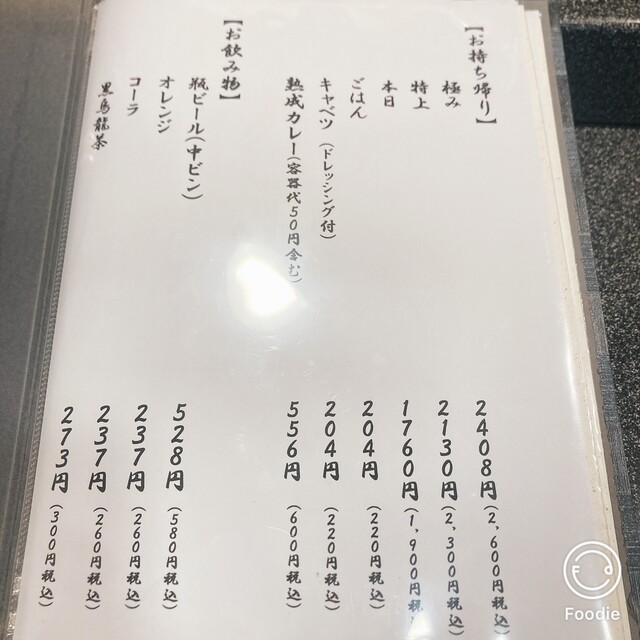 【お持ち帰り】
極み 2408円(2,600円税込)
特上 2130円(2,300円税込)
本日 1760円(1,900円税込)
ごはん 204円(220円税込)
キャベツ(ドレッシング付) 204円(220円税込)
熟成カレー(容器代50円含む) 556円(600円税込)
【お飲み物】
瓶ビール(中ビン) 528円(580円税込)
オレンジ 237円(260円税込)
コーラ 237円(260円税込)
黒烏龍茶 273円(300円税込)
Foodie